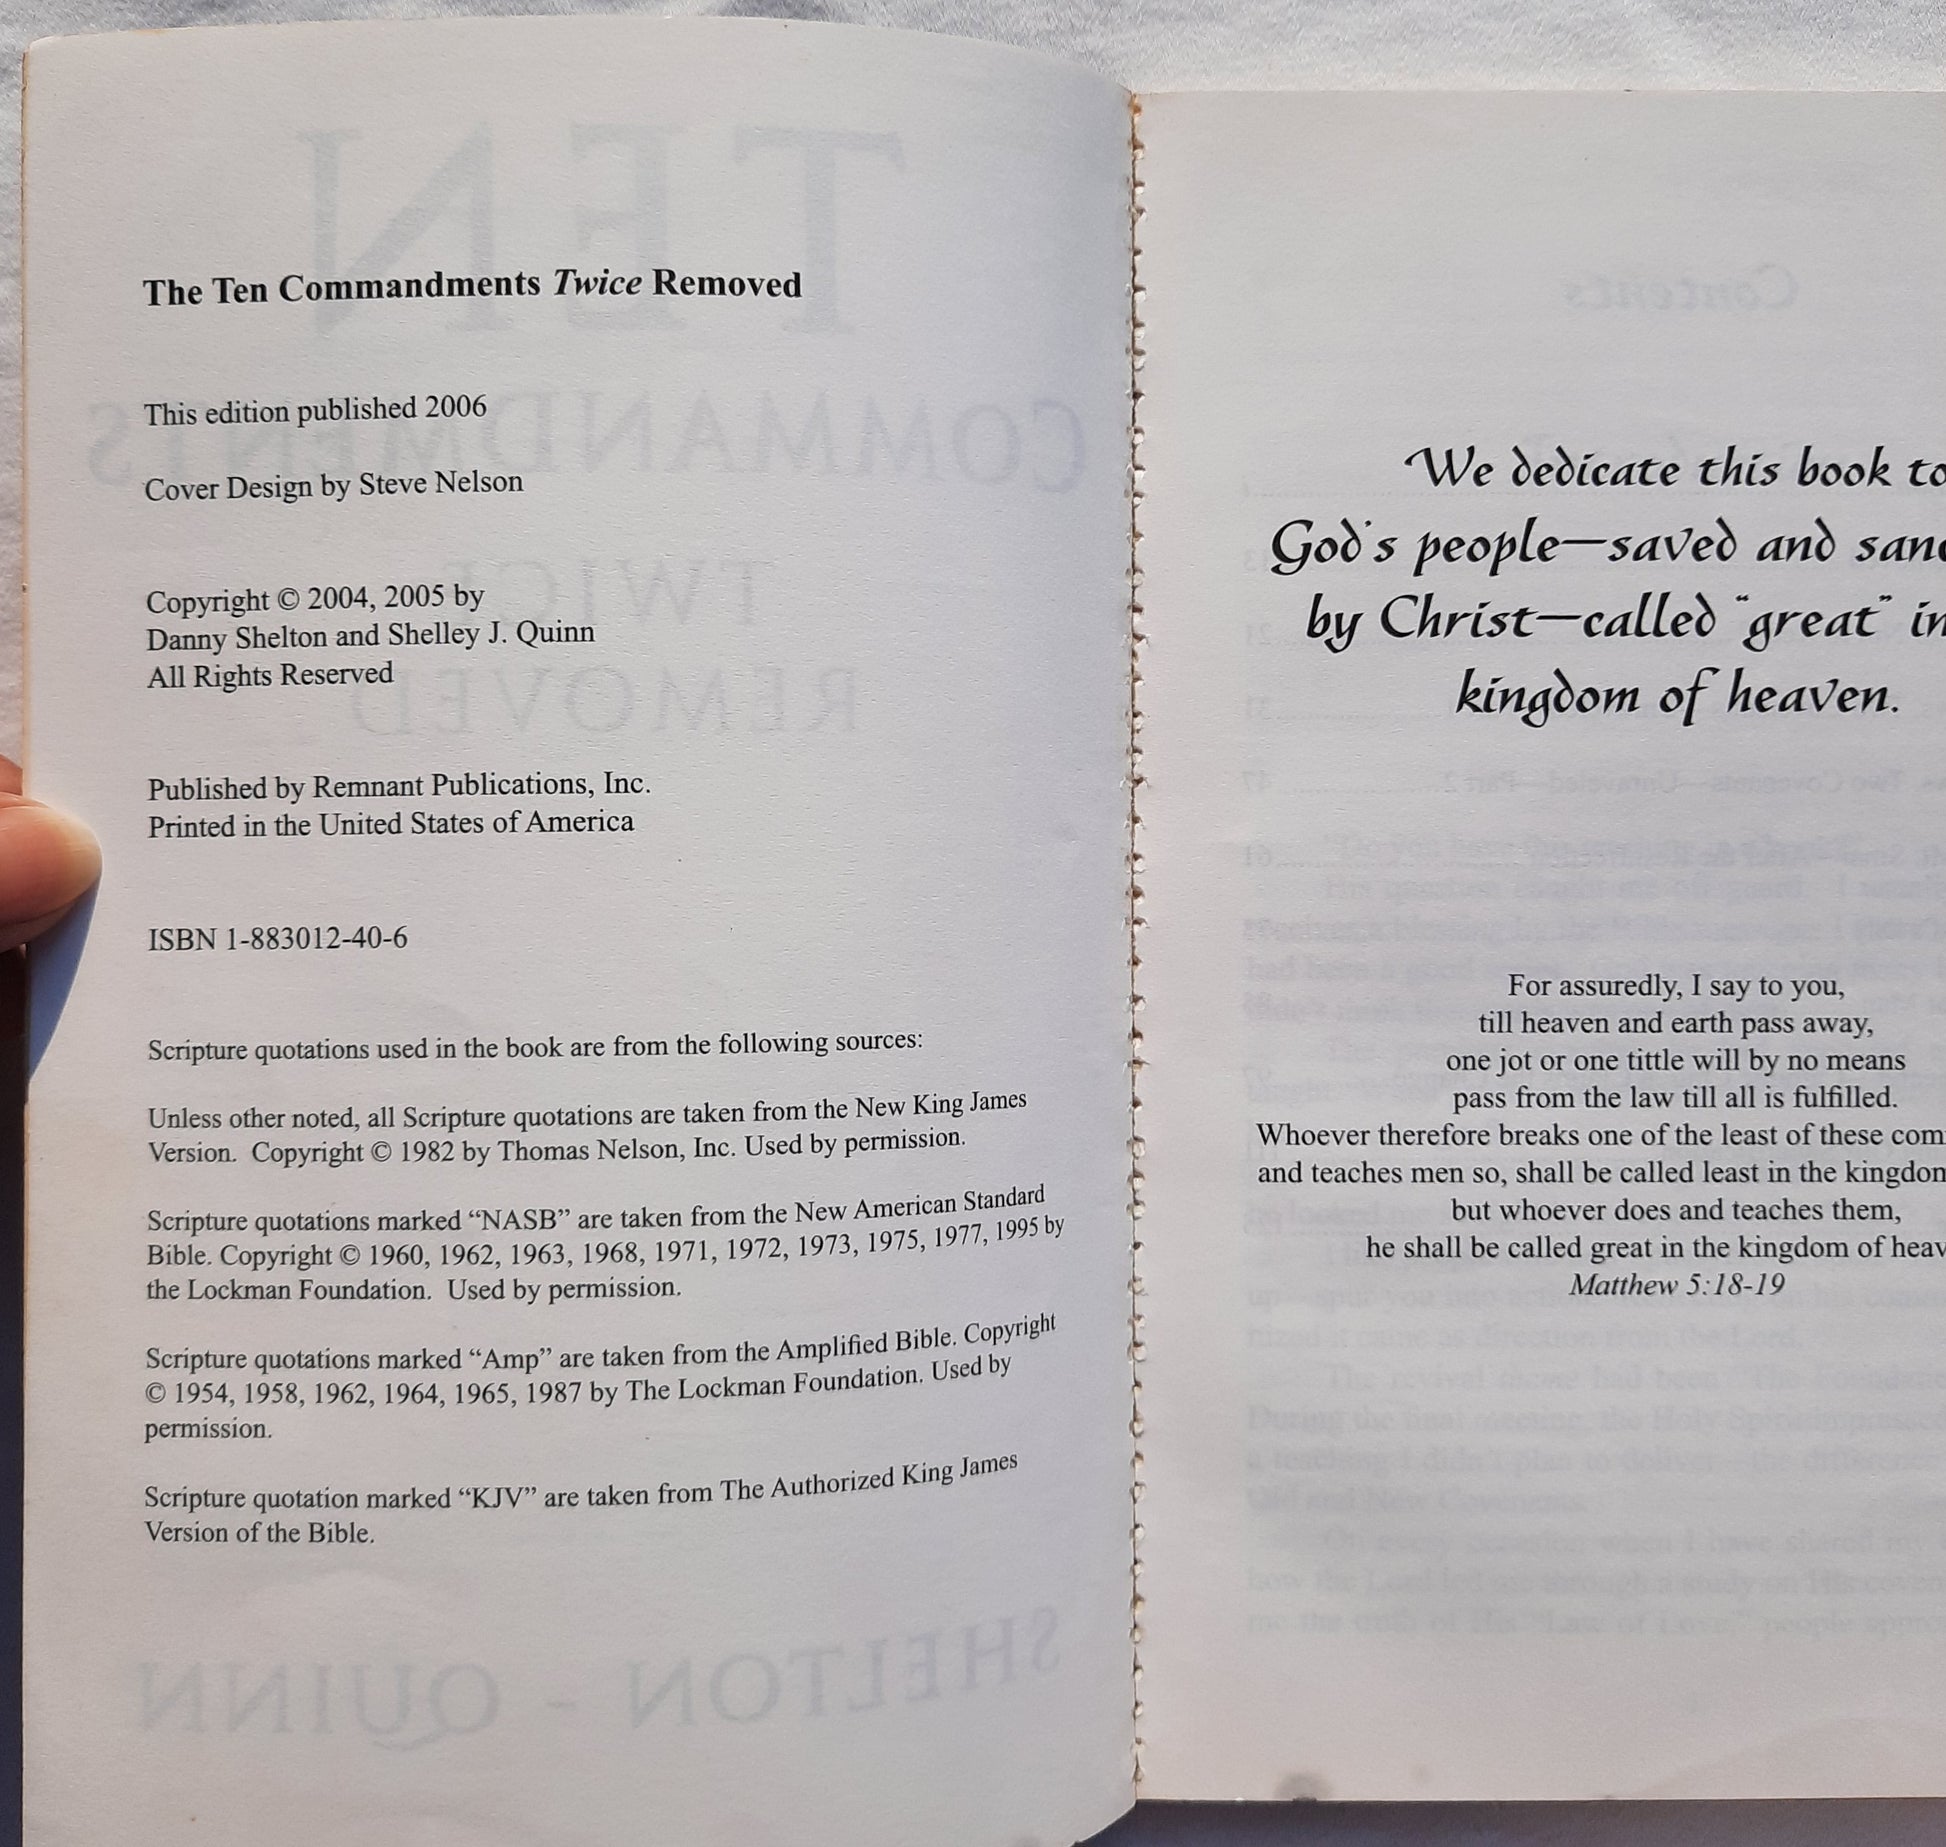 The Ten Commandments Twice Removed
This edition published 2006
Cover Design by Steve Nelson
Copyright © 2004, 2005 by
Danny Shelton and Shelley J. Quinn
All Rights Reserved
Published by Remnant Publications, Inc.
Printed in the United States of America
ISBN 1-883012-40-6
Scripture quotations used in the book are from the following sources:
Unless other noted, all Scripture quotations are taken from the New King James
Version. Copyright © 1982 by Thomas Nelson, Inc. Used by permission.
Scripture quotations marked “NASB” are taken from the New American Standard
Bible. Copyright © 1960, 1962, 1963, 1968, 1971, 1972, 1973, 1975, 1977, 1995 by
the Lockman Foundation. Used by permission.
Scripture quotations marked “Amp” are taken from the Amplified Bible. Copyright
© 1954, 1958, 1962, 1964, 1965, 1987 by The Lockman Foundation. Used by
permission.
Scripture quotation marked “KJV” are taken from The Authorized King James
Version of the Bible.
We dedicate this book to
God's people—saved and
by Christ—called “great” in
kingdom of heaven.
For assuredly, I say to you,
till heaven and earth pass away,
one jot or one tittle will by no means
pass from the law till all is fulfilled.
Whoever therefore breaks one of the least of these
and teaches men so, shall be called least in the kingdom
but whoever does and teaches them,
he shall be called great in the kingdom of
Matthew 5:18-19